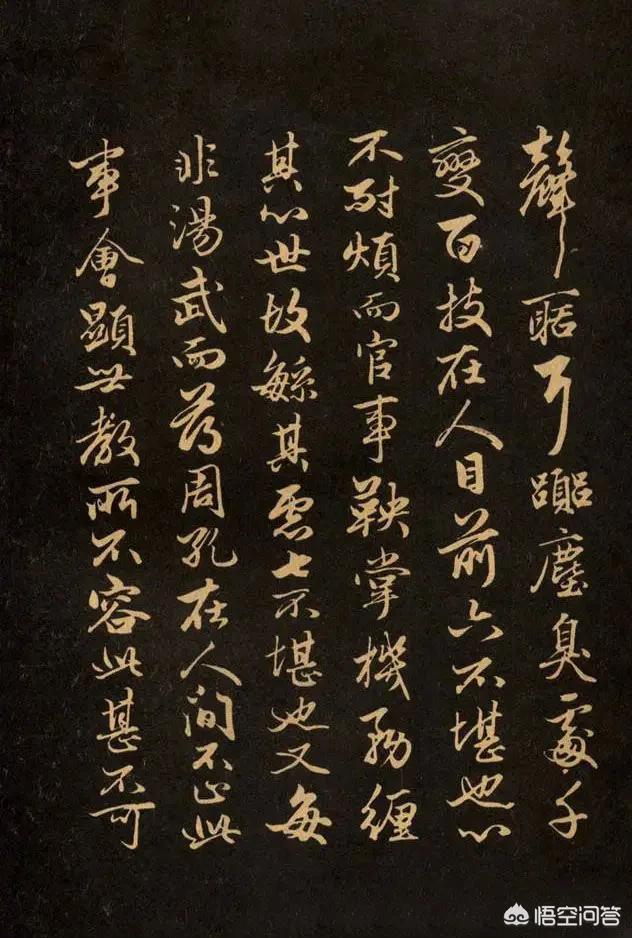 聲聒耳囂塵臭處千
變百技在人目前六不堪也心
不耐煩而官事鞅掌機務纏
其心世故緐其慮七不堪也又每
非湯武而薄周孔在人間不止此
事會顯世教所不容此甚不可
悟空问答